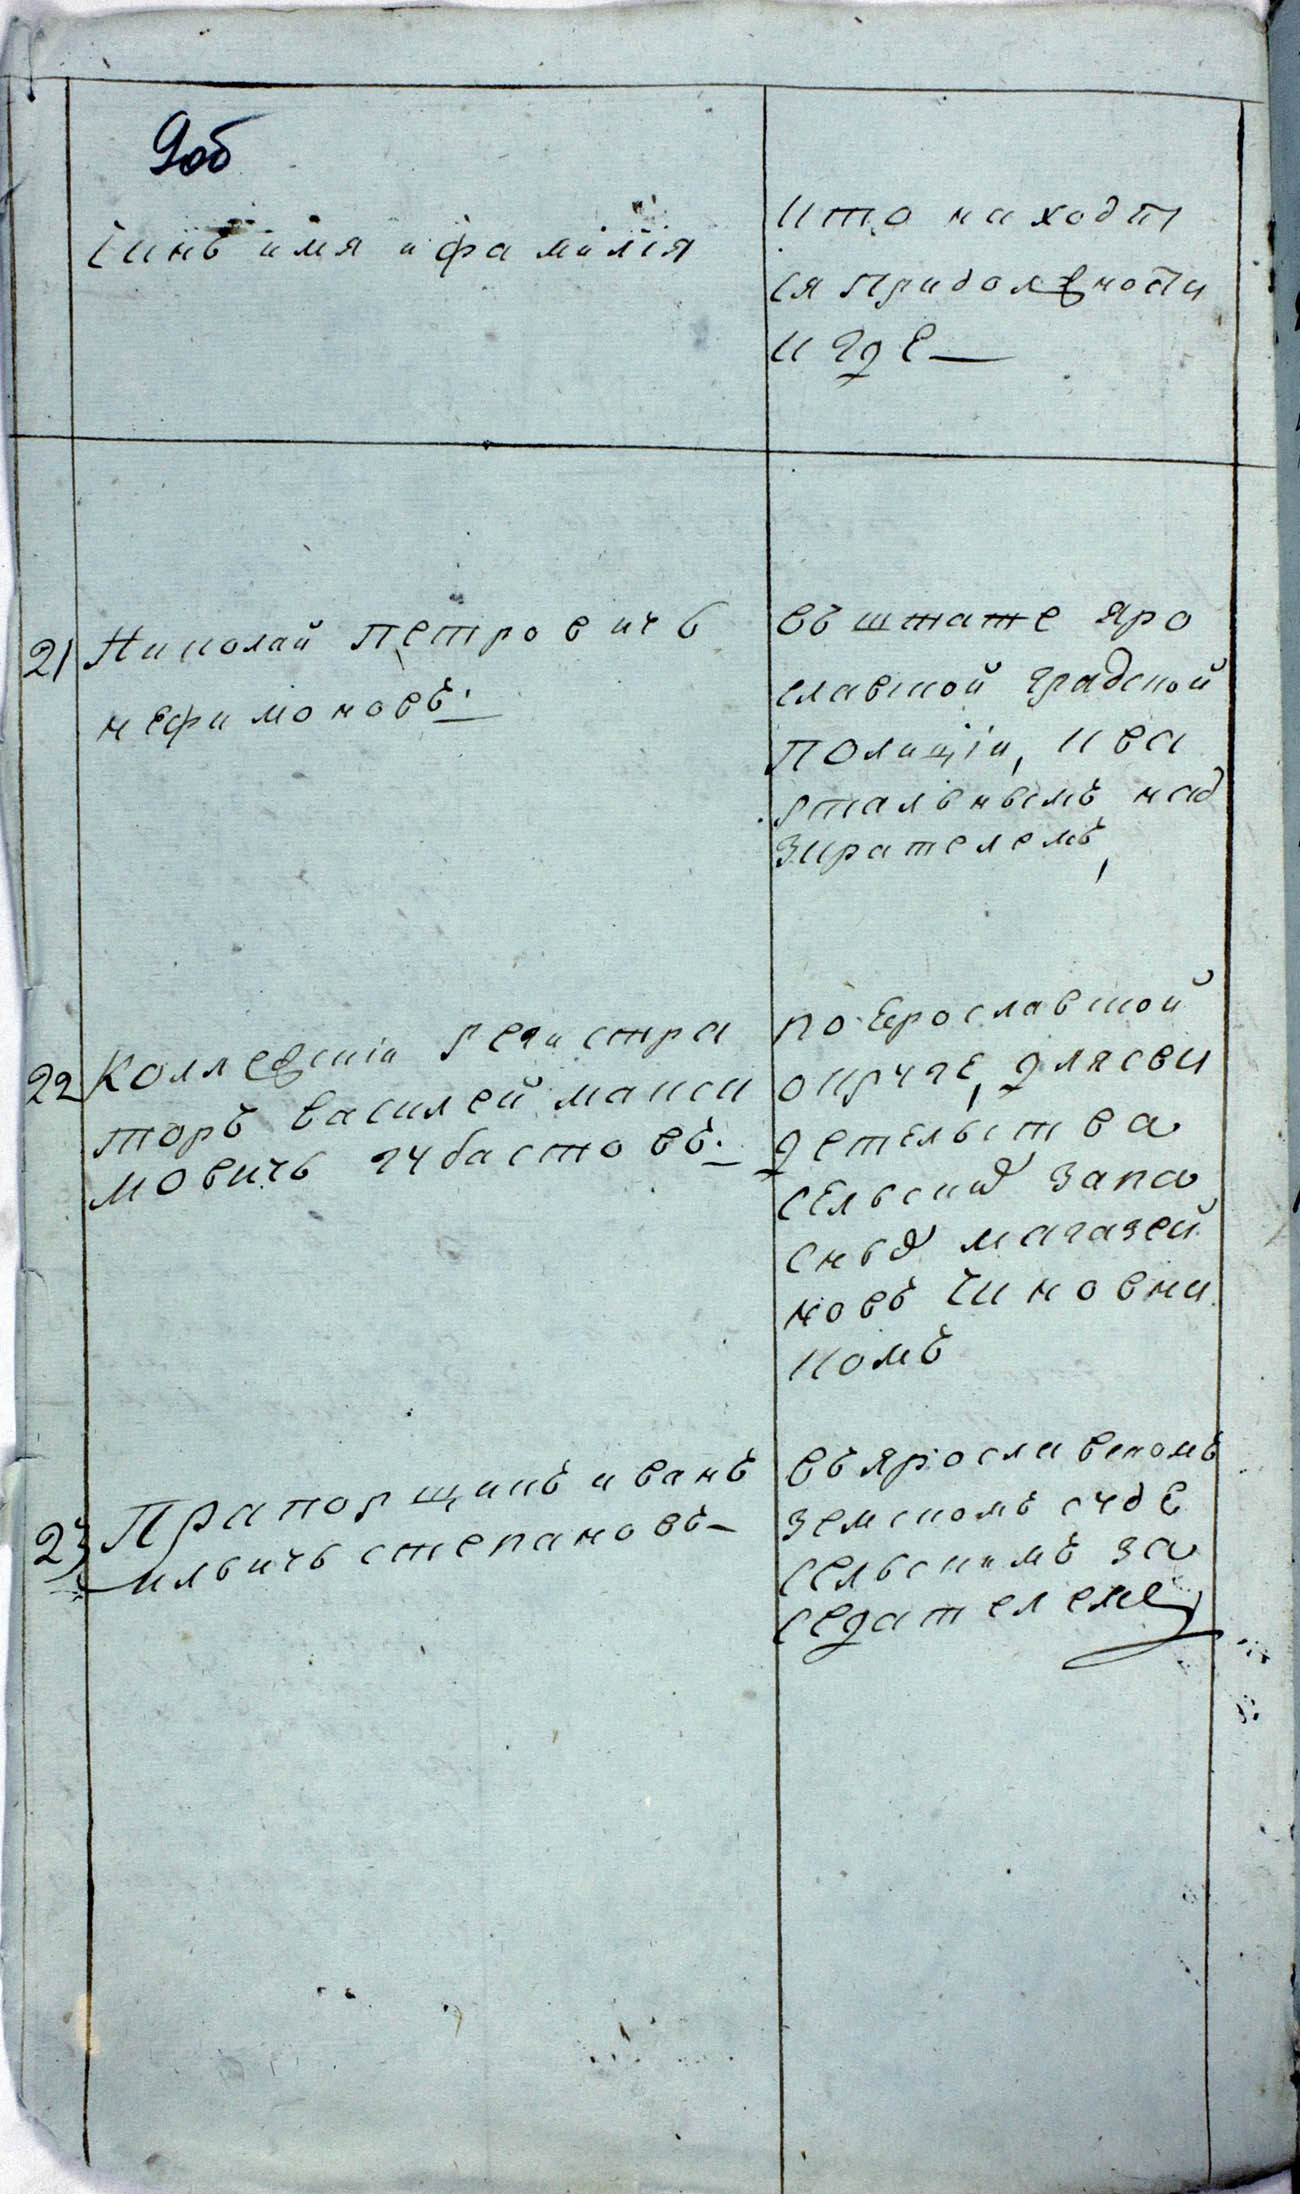 9об
Чинъ имя и фамилія
Кто находит
ся придолжности
и где
21 Николай Петровичь
Нефимоновъ
въ штате Яро
славской градской
Полиціи, ква
ртальнымъ над
зирателемъ,
22 Коллежскій Регистра
торъ Василей Макси
мовичь Губастовъ
по Ерославской
округе, для сви
детельства
сельских запа
сных магазей
новъ чиновни
комъ
23 Прапорщикъ Иванъ
Ильичь Степановъ
въ Ярославскомъ
земскомъ суде
сельскимъ за
седателемъ